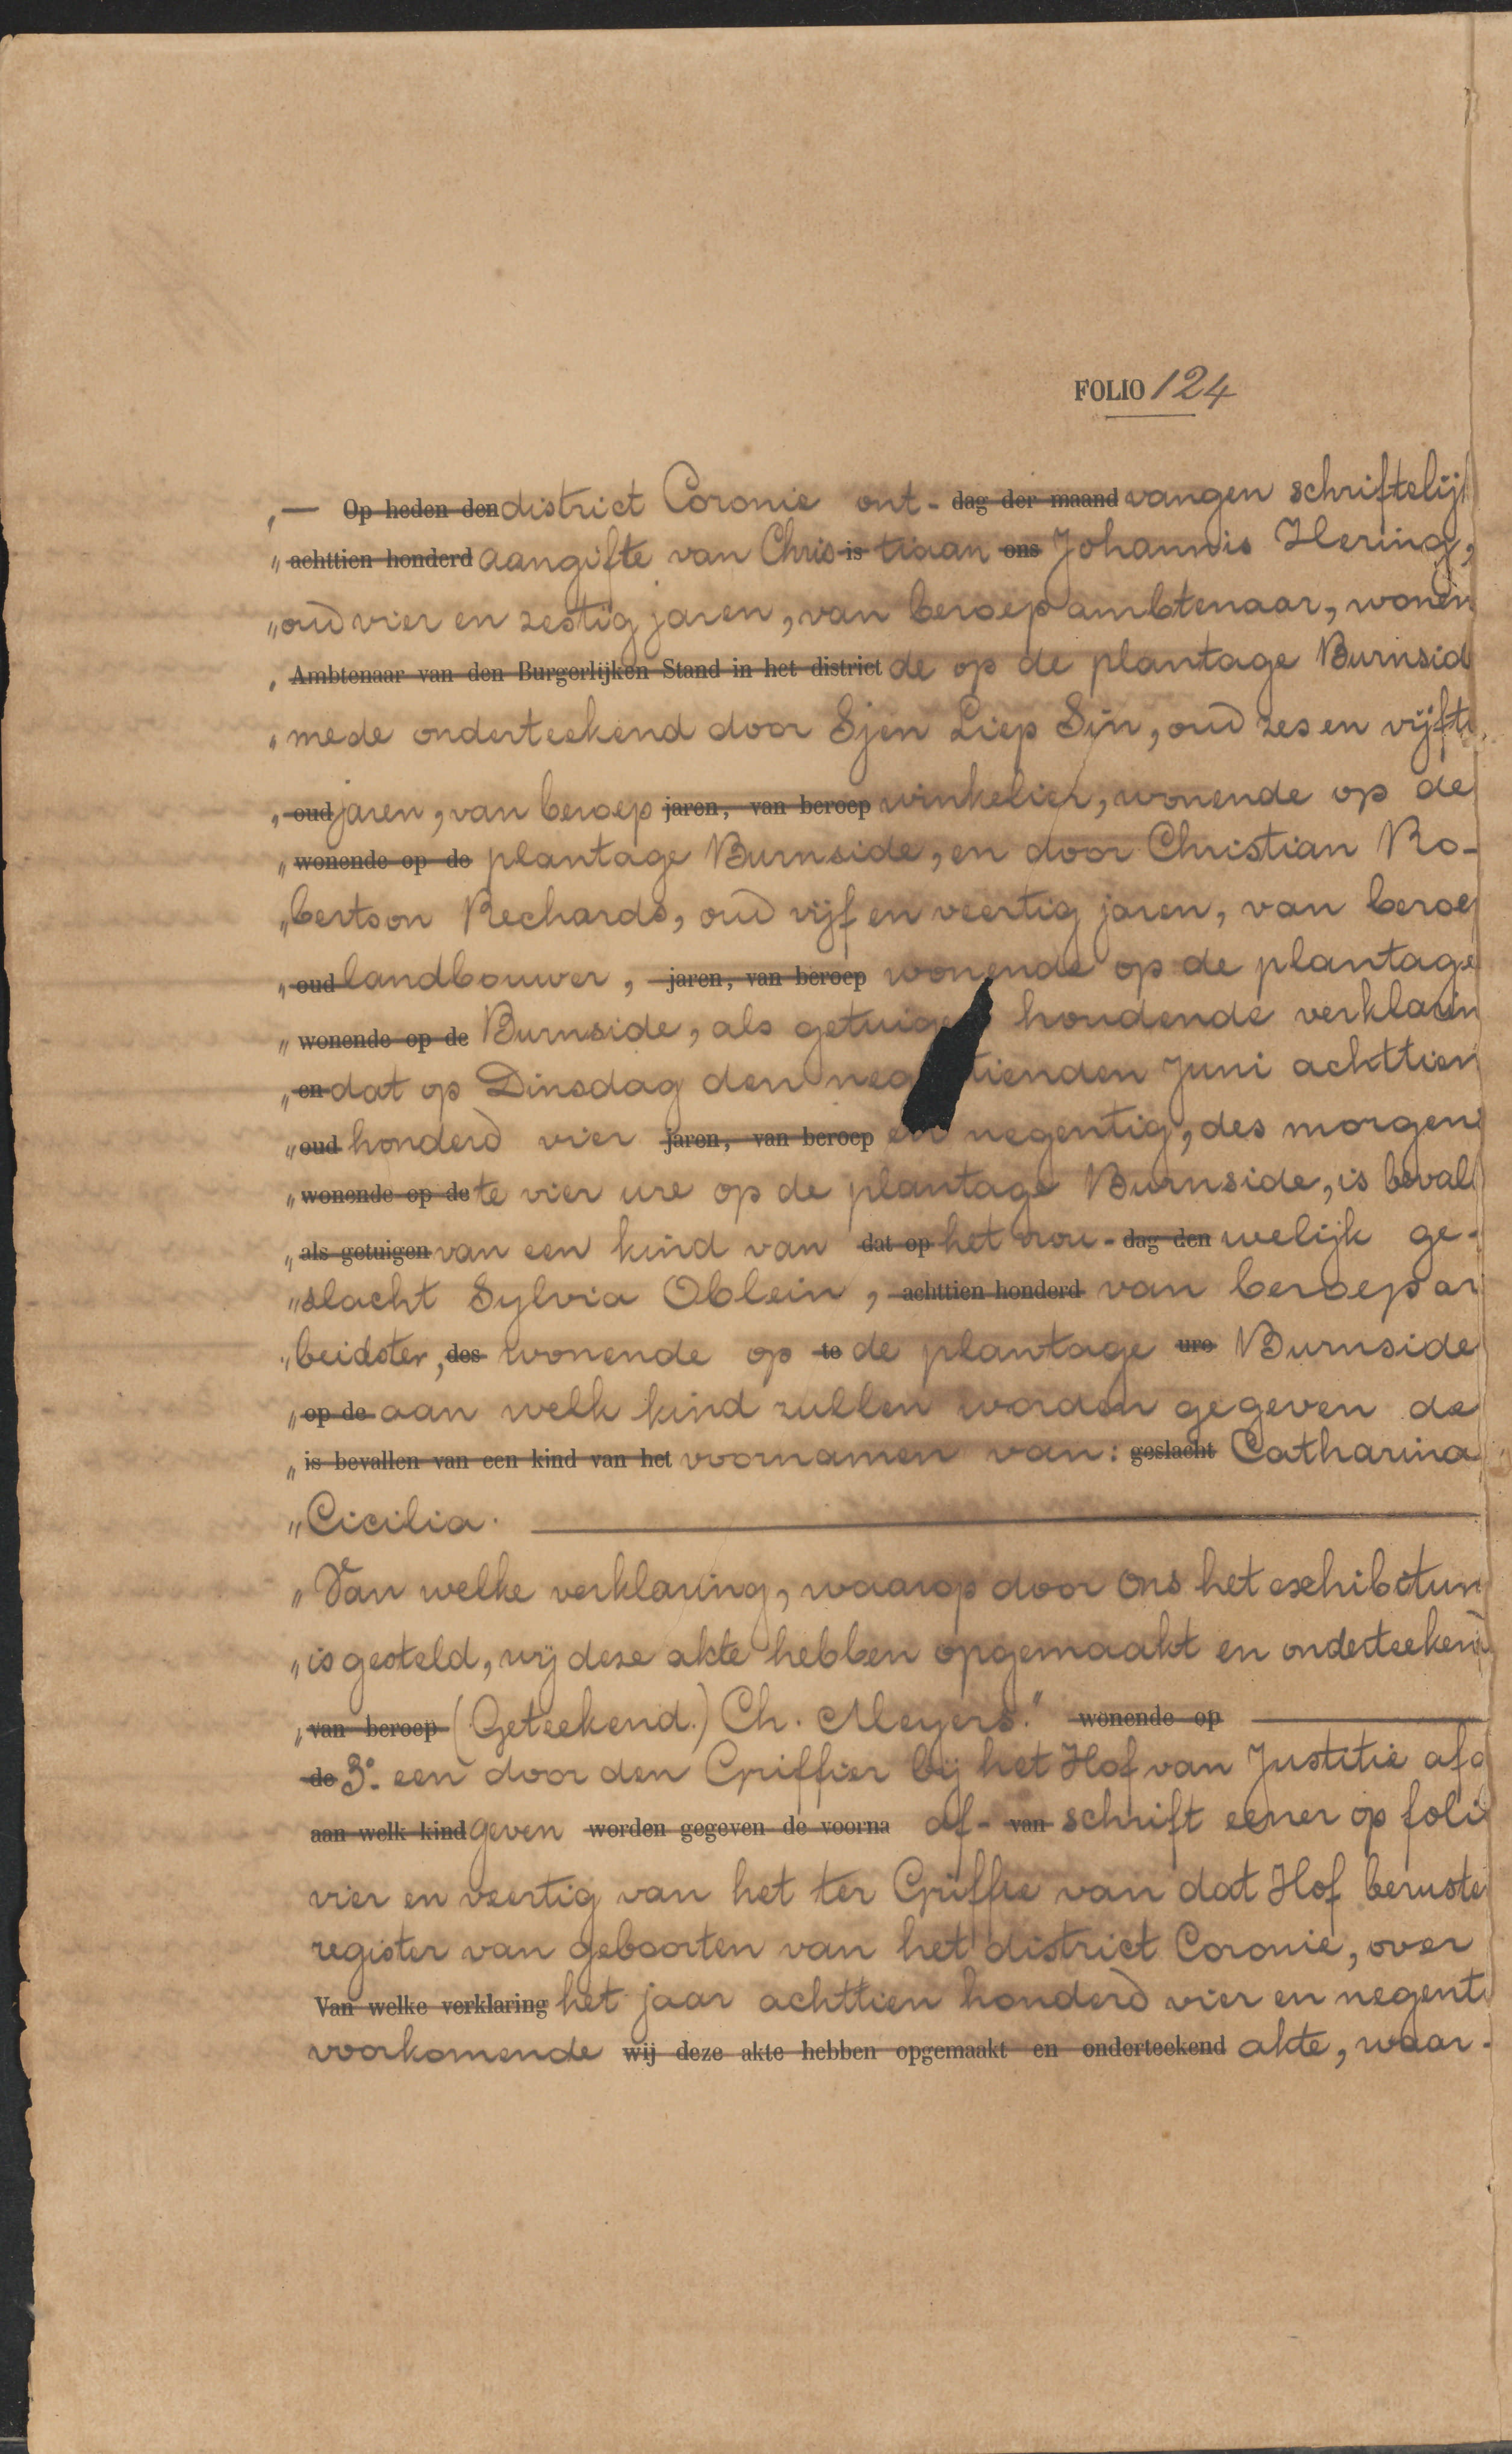 FOLIO 124
„— Op heden den district Coronie ont- dag der maand vangen schriftelijk
„achttien honderd aangifte van Chris is tiaan ons Johannis Hering,
„oud vier en zestig jaren, van beroep ambtenaar, wonen
„Ambtenaar van den Burgerlijken Stand in het district de op de plantage Burnsid
„mede onderteekend door Sjen Liep Sin, oud zes en vijfti
„oud jaren, van beroep jaren, van beroep winkelier, wonende op de
„wonende op de plantage Burnside, en door Christian Ro-
„bertson Rechards, oud vijf en veertig jaren, van beroe
„oud landbouwer, jaren, van beroep wonende op de plantage
„wonende op de Burnside, als getuige houdende verklarin
„en dat op Dinsdag den neg tienden Juni achttien
„oud honderd vier jaren, van beroep en negentig, des morgens
„wonende op de te vier ure op de plantage Burnside, is beval
„als getuigen van een kind van dat op het vrou- dag den welijk ge-
„slacht Sylvia Oblein, achttien honderd van beroep ar
„beidster, des wonende op te de plantage ure Burnside
„op de aan welk kind zullen worden gegeven de
„is bevallen van een kind van het voornamen van: geslacht Catharina
„Cicilia.
„Van welke verklaring, waarop door Ons het exhibitum
„is gesteld, wij deze akte hebben opgemaakt en onderteekend
„van beroep (Geteekend.) Ch. Meyers." wonende op
de 3o. een door den Griffier bij het Hof van Justitie afg
aan welk kind geven worden gegeven de voorna af- van schrift eener op foli
vier en veertig van het ter Griffie van dat Hof beruste
register van geboorten van het district Coronie, over
Van welke verklaring het jaar achttien honderd vier en negenti
voorkomende wij deze akte hebben opgemaakt en onderteekend akte, waar-